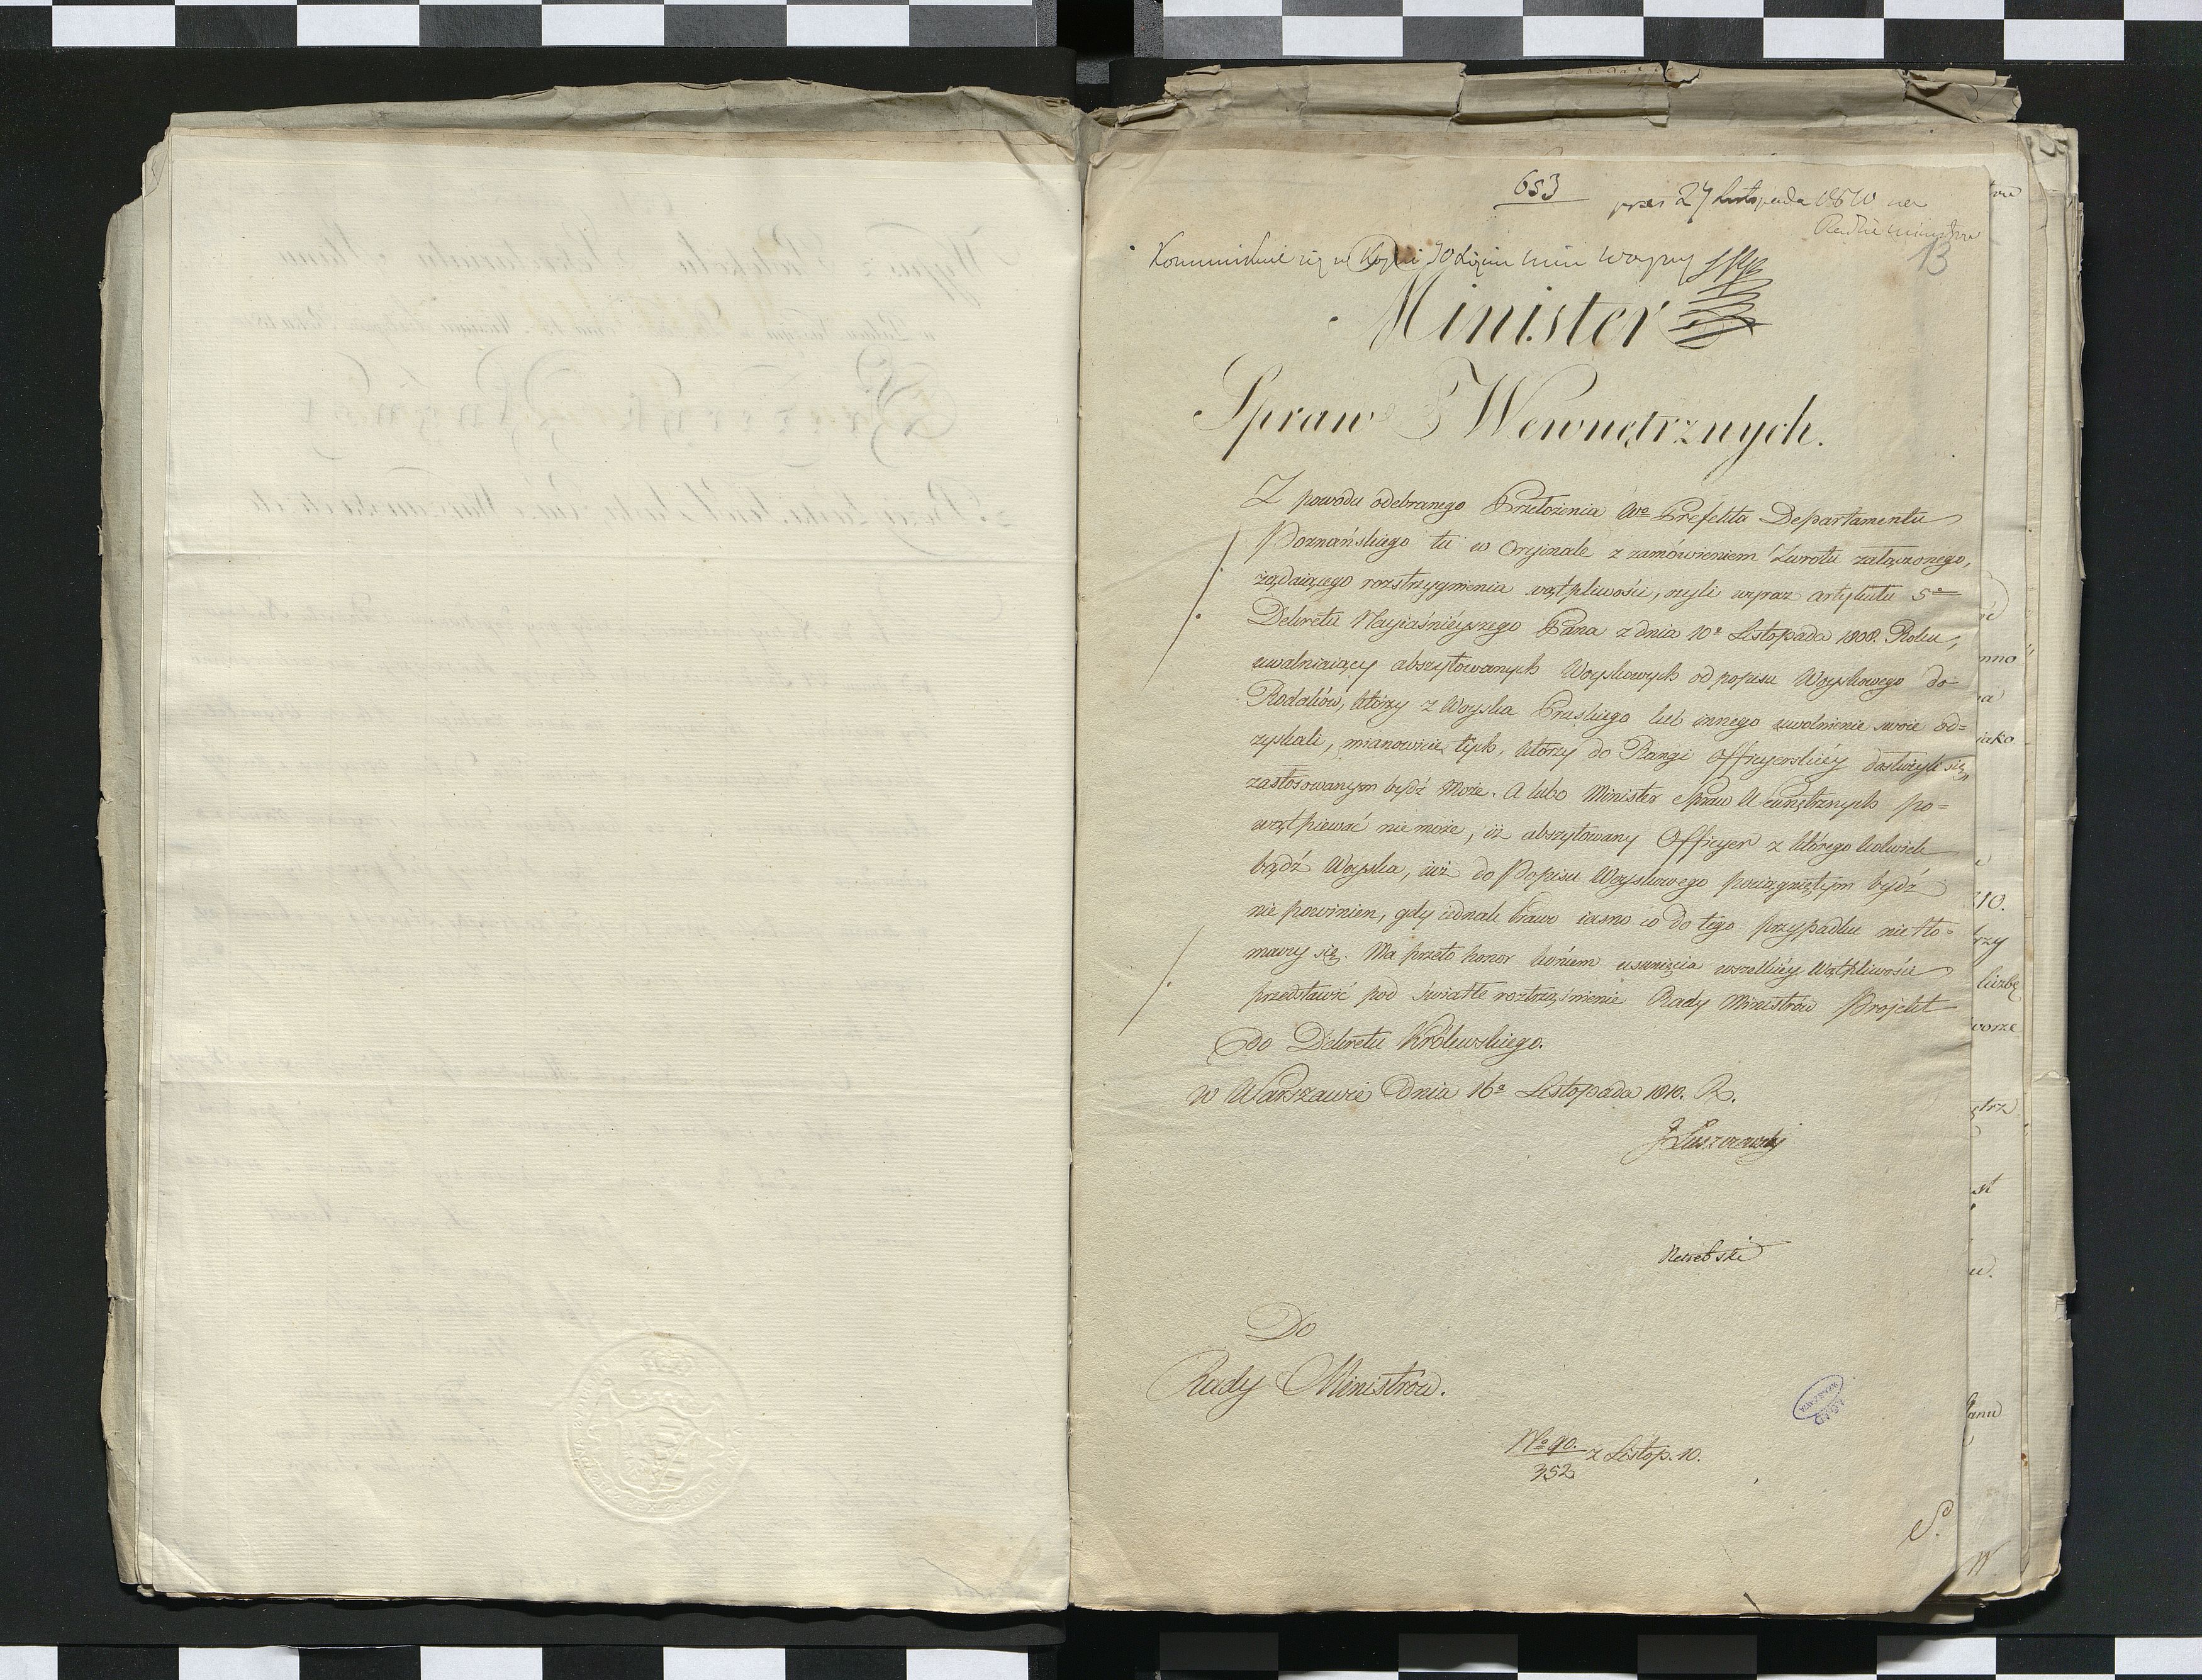 653
pres 27 Listopada 1810 na
Radzie Ministrow
13
Kommunikuie się w Kopii JO Xięciu Min Woyny
Minister
Spraw Wewnętrznych.
Z powodu odebranego Przełożenia Wo Prefekta Departamentu
Poznańskiego tu w Oryinale z zamówieniem Zwrotu załączonego,
żądaiącego rozstrzygnienia wątpliwości, czyli wyraz artykułu 5o
Dekretu Nayiaśnieyszego Pana z dnia 10o Listopada 1808. Roku,
uwalniaiący abszytowanych Woyskowych od popisu Woyskowego do
Rodaków, którzy z Woyska Pruskiego lub innego uwolnienie swoie od=
zyskali, mianowicie tych, którzy do Rangi Officyerskiéy dosłużyli się,
zastosowanym bydź może. A lubo Minister Spraw Wewnętrznych po=
wątpiewać nie może, iż abszytowany Officyer z któregokolwiek
bądź Woyska, iuż do Popisu Woyskowego pociągniętym bydź
nie powinien, gdy iednak Prawo iasno co do tego przypadku nie tło=
maczy się. Ma przeto honor końcem usunięcia wszelkiéy Wątpliwości
przedstawić pod światłe roztrząśnienie Rady Ministrów Projekt
do Dekretu Królewskiego.
w Warszawie Dnia 16o Listopada 1810. R.
J Łuszczewski
Do
Rady Ministrów.
No 90. z Listop. 10.
352
AGAD
WARSZAWA